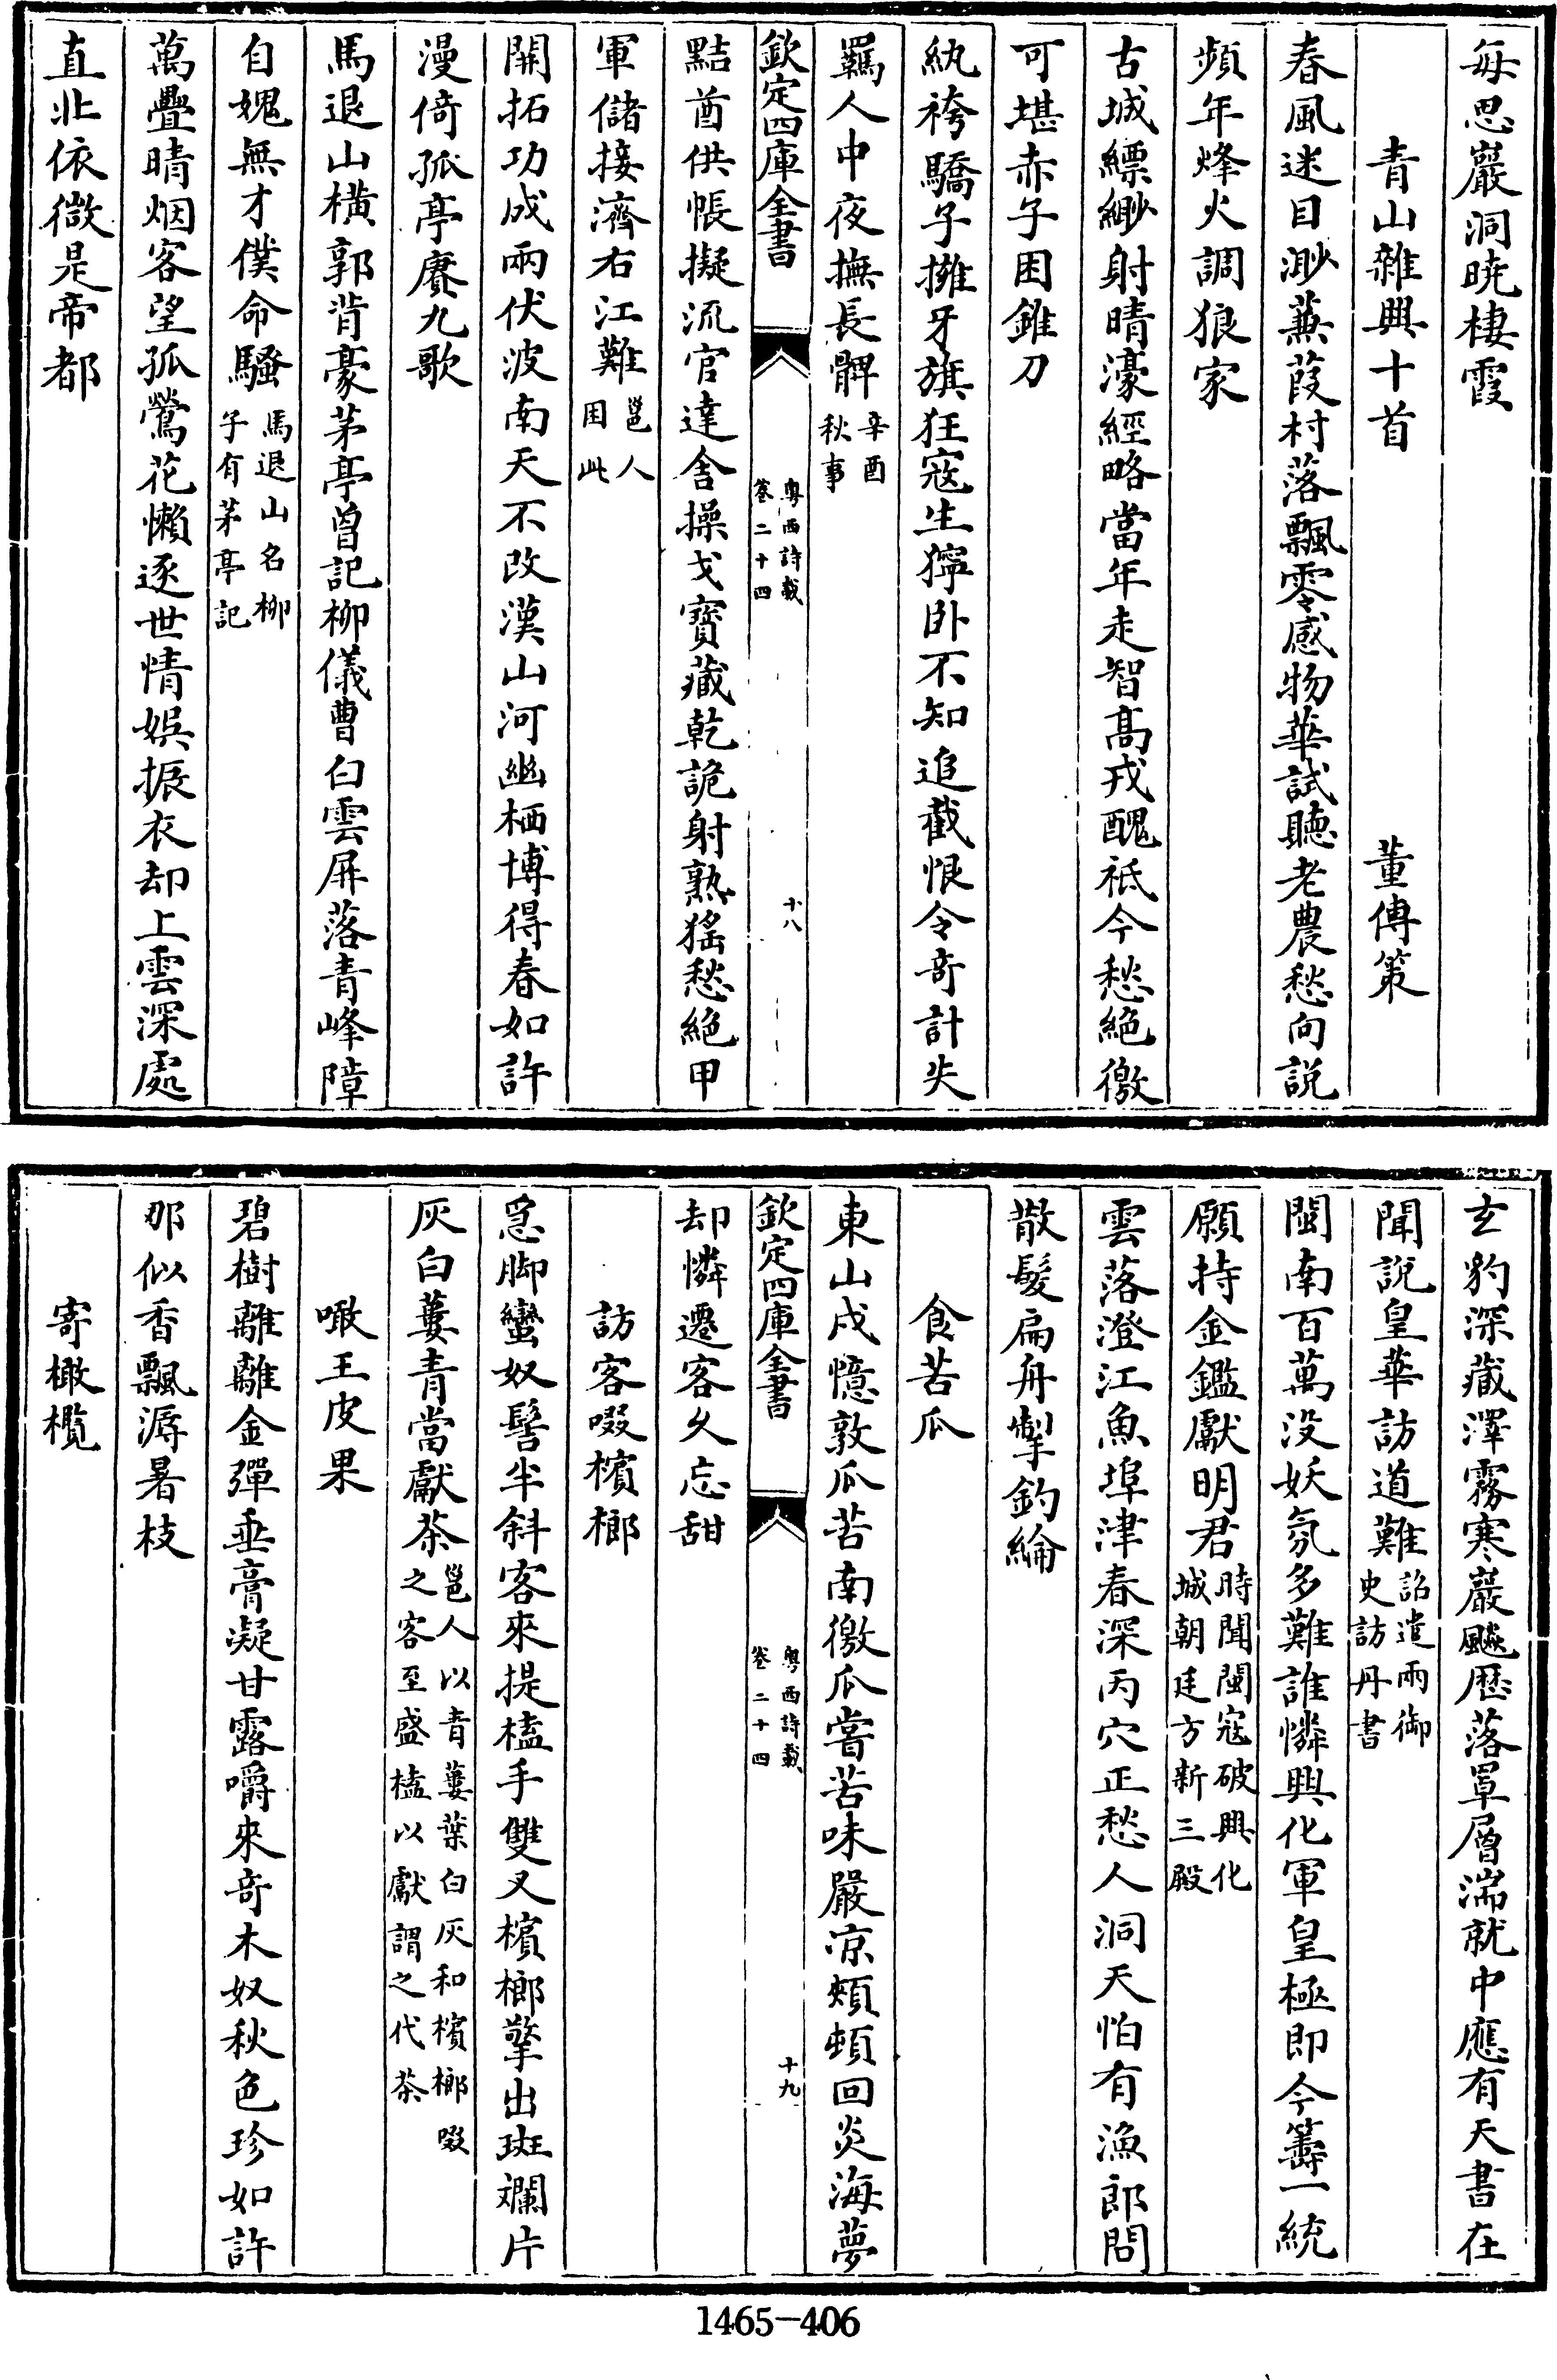 每思巖洞晓棲霞
青山雜興十首　董傅策
春風迷目渺蒹葭村落飄零感物華試聴老農愁向說
頻年烽火調狼家
古城縹緲射晴濠經略當年走智髙戎醜祗今愁絶徼
可堪赤子困錐刀
紈袴驕子擁牙旗狂寇生獰卧不知追截恨令竒計失
羈人中夜撫長髀辛酉
秋事
欽定四庫全書
粤西詩載
卷二十四
十八
黠酋供帳擬流官達舍操戈寶藏乾詭射熟猺愁絶甲
軍儲接濟右江難邕人
困此
開拓功成兩伏波南天不改漢山河幽栖博得春如許
漫倚孤亭賡九歌
馬退山横郭背豪茅亭曾記柳儀曹白雲屏落青峰障
自媿無才僕命騷馬退山名柳
子有茅亭記
萬疊晴烟客望孤鶯花懒逐世情娯振衣却上雲深處
直北依微是帝都
玄豹深藏澤霧寒巖颷歴落罩層湍就中應有天書在
聞說皇華訪道難詔遣兩御
史訪丹書
閩南百萬没妖氛多難誰憐興化軍皇極即今籌一統
願持金鑑獻明君時聞閩寇破興化
城朝廷方新三殿
雲落澄江魚埠津春深丙穴正愁人洞天怕有漁郎問
散髮扁舟掣釣綸
食苦瓜
東山戍憶敦瓜苦南徼瓜嘗苦味嚴凉頰頓回炎海夢
欽定四庫全書
粤西詩載
卷二十四
十九
却憐遷客久忘甜
訪客啜檳榔
急脚蠻奴髻半斜客來提榼手雙叉檳榔擎出斑斕片
灰白蔞青當獻茶邕人以青蔞葉白灰和檳榔啜
之客至盛榼以獻謂之代茶
噉王皮果
碧樹離離金彈垂膏凝甘露嚼來竒木奴秋色珍如許
那似香飄溽暑枝
寄橄欖
1465-406